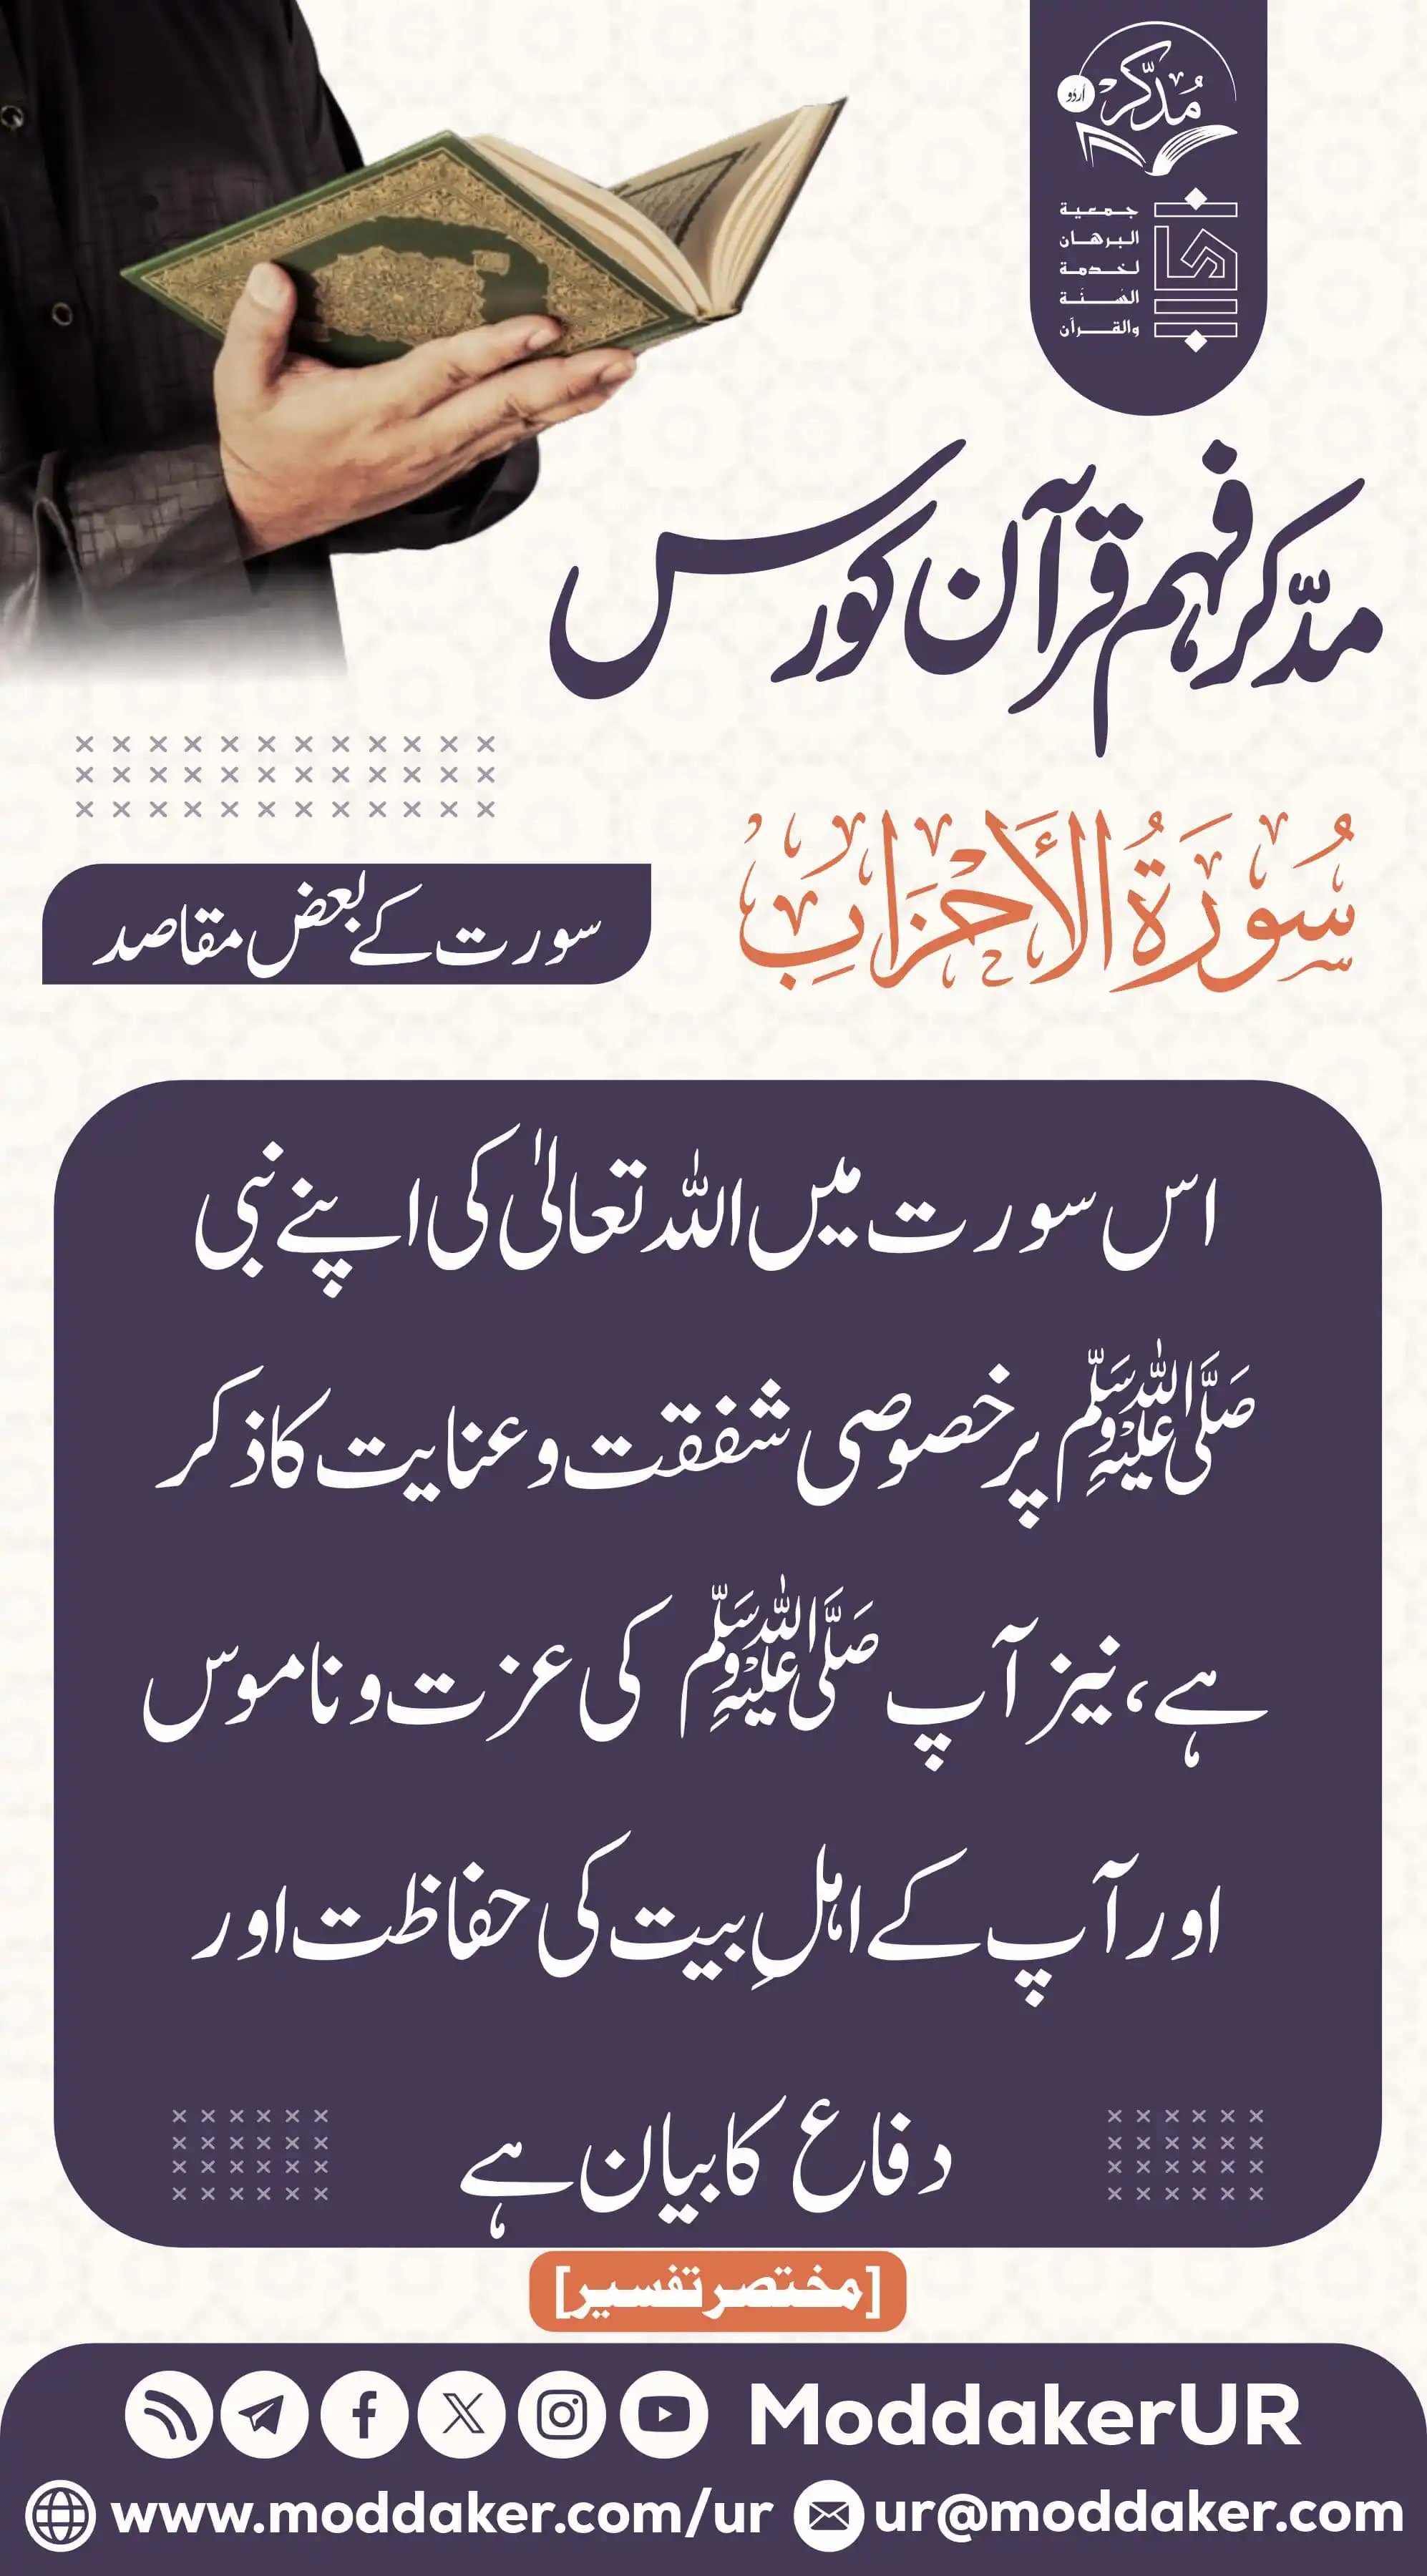 مدّکر
اُردُو
جمعية
البرهان
لخدمة
السُنّة
والقرآن
مدّکر فہم قرآن کورس
سُورَةُ الأَحْزَابِ
سورت کے بعض مقاصد
اس سورت میں اللہ تعالیٰ کی اپنے نبی
صَلَّى اللهُ عَلَيْهِ وَسَلَّم پر خصوصی شفقت و عنایت کا ذکر
ہے، نیز آپ صَلَّى اللهُ عَلَيْهِ وَسَلَّم کی عزت و ناموس
اور آپ کے اہلِ بیت کی حفاظت اور
دفاع کا بیان ہے
[مختصر تفسیر]
ModdakerUR
www.moddaker.com/ur ur@moddaker.com